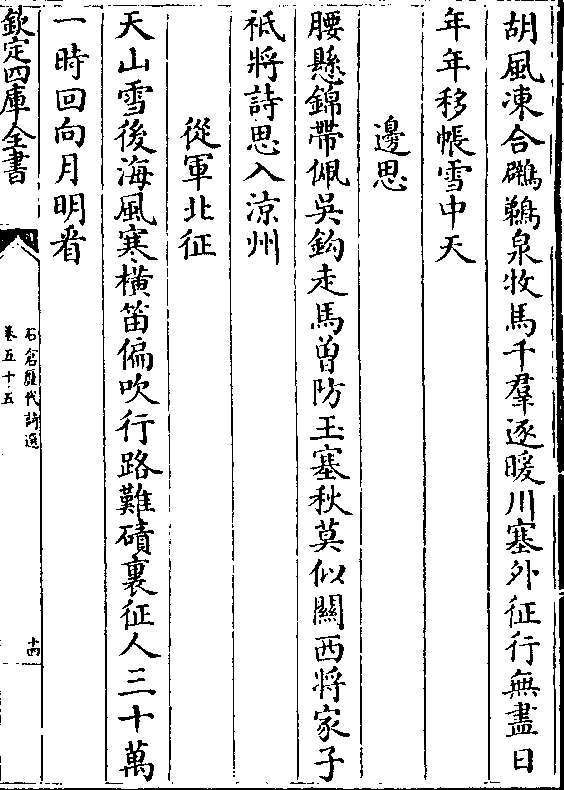 胡風凍合鸊鵜泉牧馬千羣逐暖川塞外征行無盡日
年年移帳雪中天
邊思
腰懸錦帶佩吳鈎走馬曽防玉塞秋莫似關西將家子
祗將詩思入涼州
從軍北征
天山雪後海風寒橫笛偏吹行路難磧裏征人三十萬
一時回向月明看
欽定四庫全書
石倉歷代詩選
卷五十五
十四